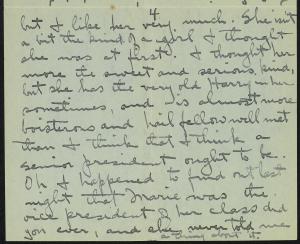 4
but I like her very much. She isn't
a bit the kind of a girl I thought
she was at first. I thought her
more the sweet and serious kind,
but she has the very old Harry in her
sometimes, and is almost more
boisterous and hail fellow well met
than I think that I think a
senior president ought to be.
Oh I happened to find out last
night that Marie was the
vice president of her class did
you ever, and she never told me
a thing about it.